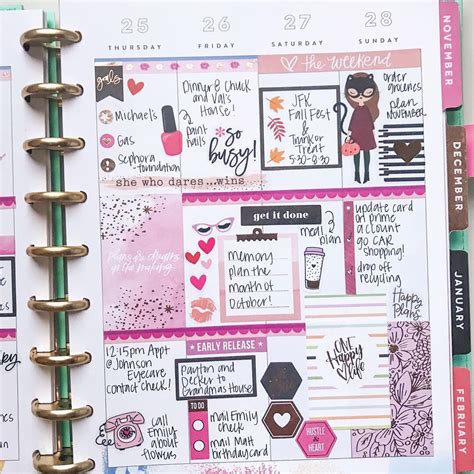 25
THURSDAY
26
FRIDAY
27
SATURDAY
28
SUNDAY
goals
Michael's
Gas
Sephora
foundation
Dinner @ Chuck
and Val's
House!
paint
nails
so
busy!
the weekend
JFK
Fall Fest
&
Trunk or
Treat
5:30-8:30
order
groceries
plan
NOVEMBER
she who dares...wins
plans are dreams
in the making
get it done
memory
plan the
month of
October!
meal
plan
update card
on prime
account
go CAR
shopping!
drop off
recycling
Happy
Plans
ONE
Happy
life
12:15pm Appt
@Johnson
Eyecare
contact check!
call
Emily
about
flowers
EARLY RELEASE
Payton and
Decker to
Grandmas House
TO DO
mail Emily
check
mail Matt
birthday card
HUSTLE
&
HEART
NOVEMBER
DECEMBER
JANUARY
FEBRUARY